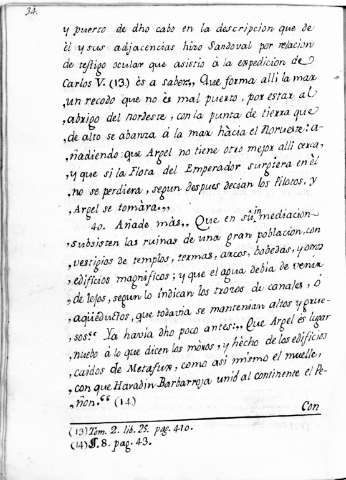 34.
y puerto de dho cabo en la descripcion que de
él y sus adjacencias hizo Sandoval por relacion
de testigo ocular que asistio à la expedicion de
Carlos V. (13.) és a saber,, Que forma alli la mar
,un recodo que no és mal puerto, por estar al
,abrigo del nordeste, con la punta de tierra que
,de alto se abanza à la mar hàcia el Norueste: a-
,ñadiendo: que Argel no tiene otro mejor alli cerca,
,y que si la Flota del Emperador surgiera en él
,no se perdiera, segun despues decian los Pilotos, y
,Argel se tomàra.,,
40. Añade màs,, Que en su inmediacion
,subsisten las ruinas de una gran poblacion, con
,vestigios de templos, termas, arcos, bobedas, y otros
,edificios magnificos; y que el agua debia de venir
,de lejos, segun lo indican los trozos de canales, ó
,aqüeductos, que todavia se mantenian altos y grue-
,sos. Ya havia dho poco antes.,, Que Argel és lugar
,nuebo à lo que dicen los moros, y hecho de los edificios
,caidos de Metafux, como asi mismo el muelle,
,con que Haradin Barbarroja unió al continente el Pe-
,ñon. (14.)
Con
(13) Tom. 2. lib. 25. pag. 410.
(14) §. 8. pag. 43.